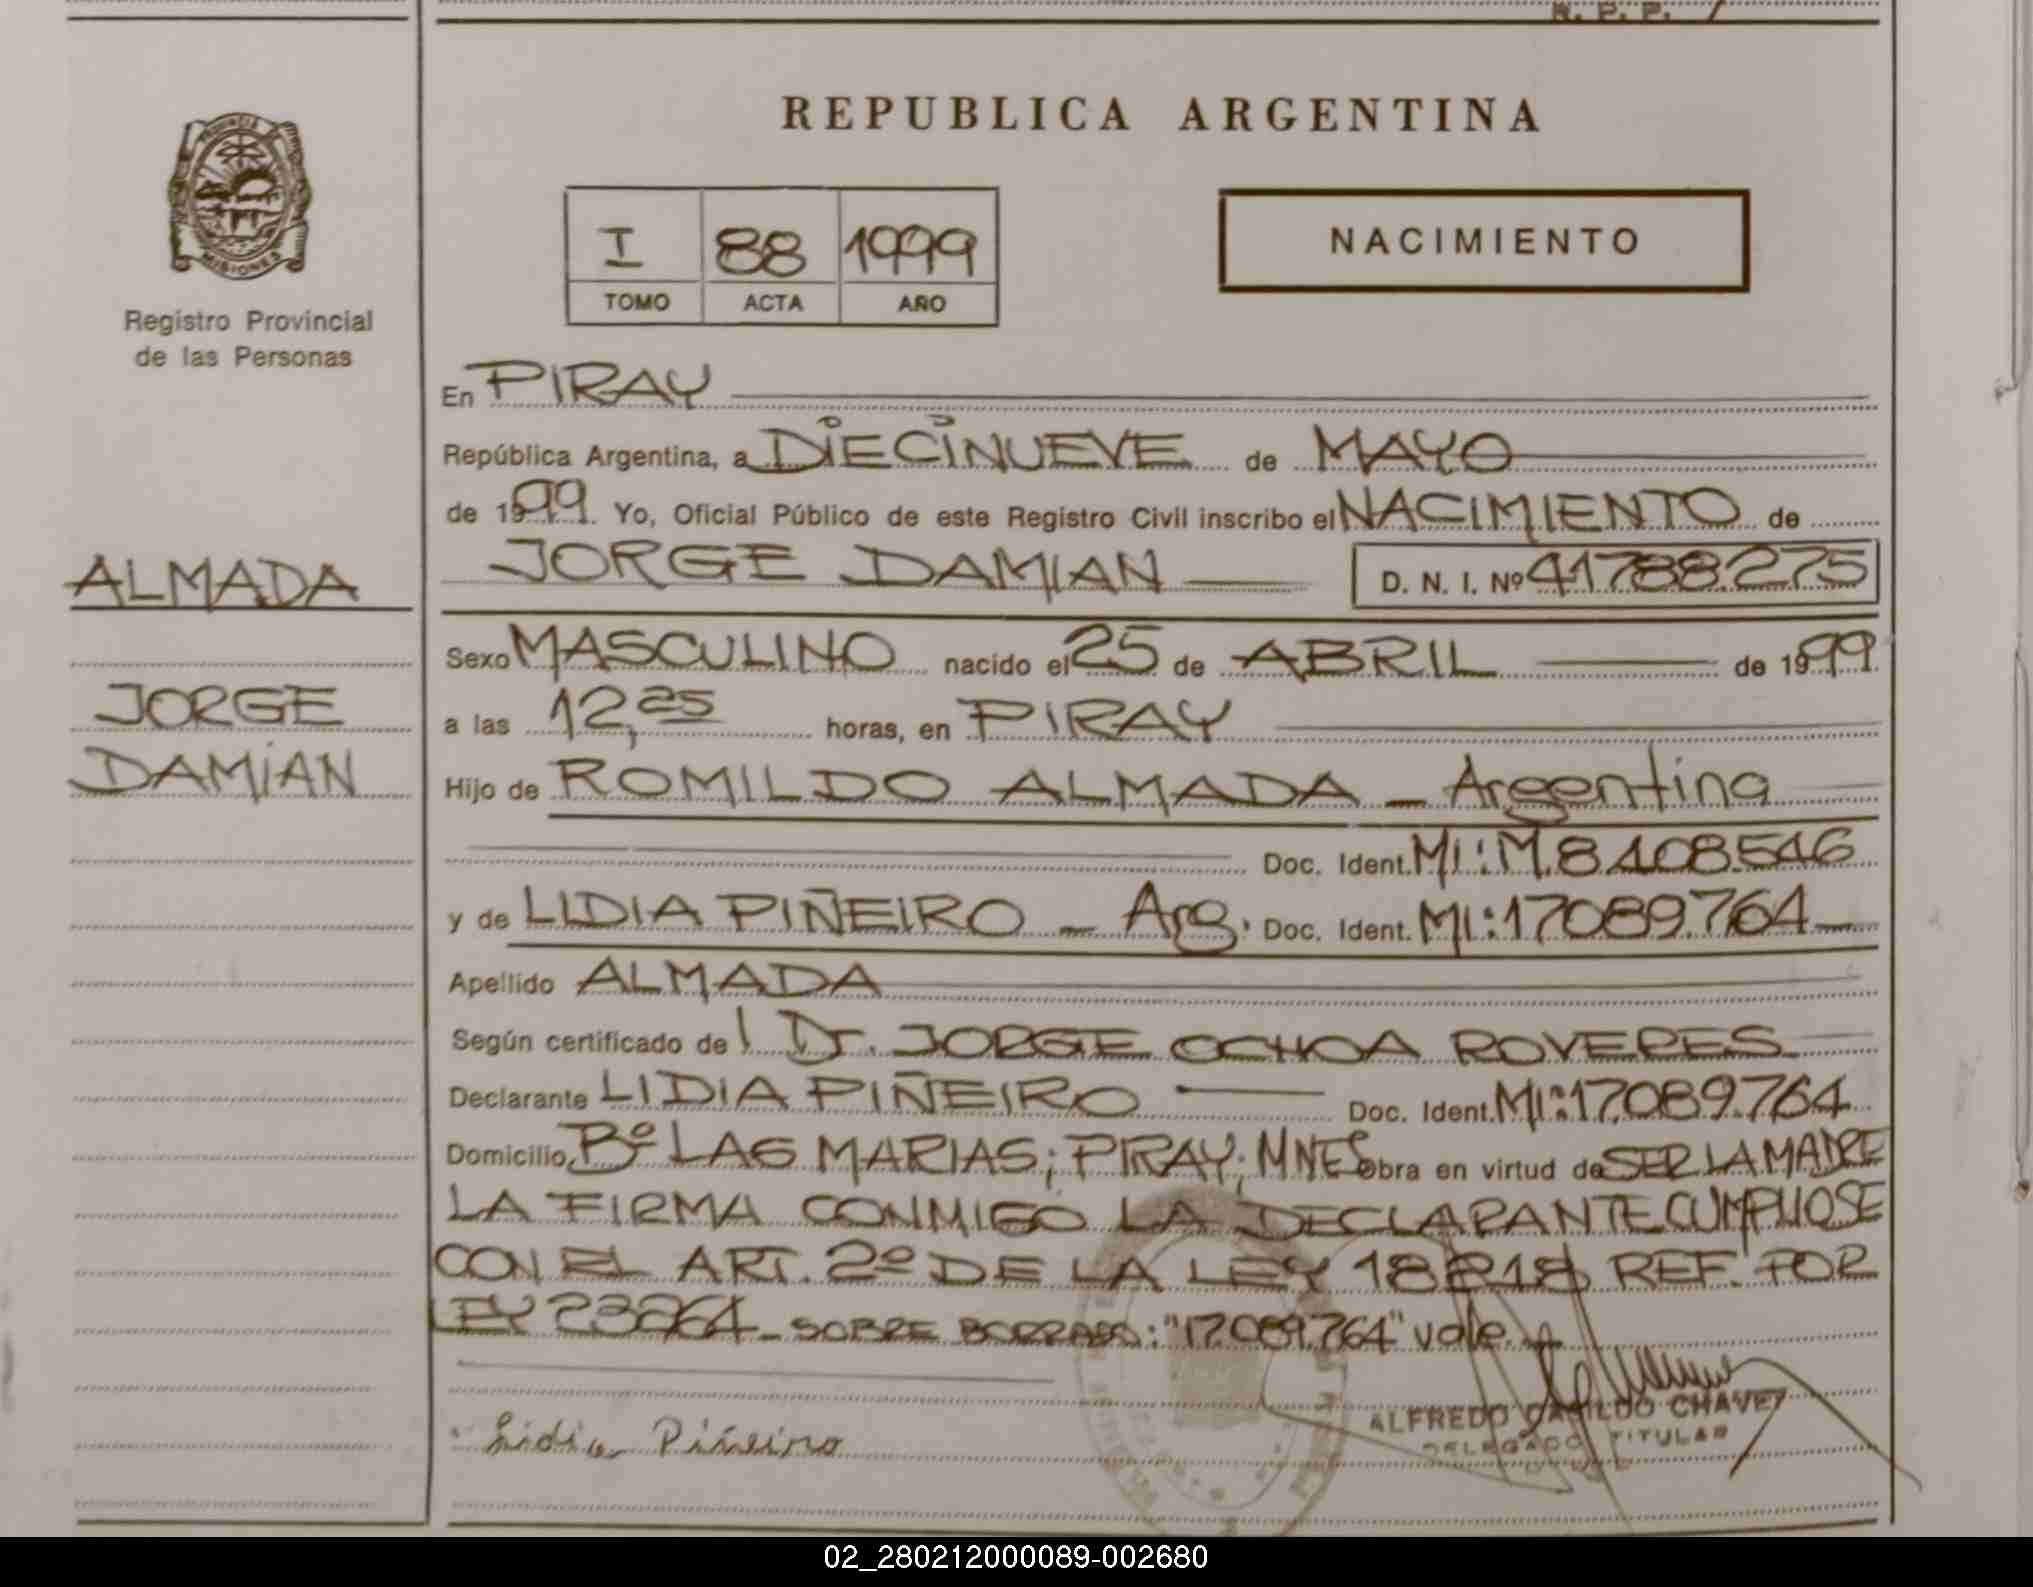 R. P. P.
REPUBLICA ARGENTINA
PROVINCIA
MISIONES
Registro Provincial
de las Personas
I 88 1999
TOMO ACTA AÑO
NACIMIENTO
En PIRAY
República Argentina, a DIECINUEVE de MAYO
de 1999. Yo, Oficial Público de este Registro Civil inscribo el NACIMIENTO de
JORGE DAMIAN D. N. I. Nº 41788.275
ALMADA
JORGE
DAMIAN
Sexo MASCULINO nacido el 25 de ABRIL de 1999.
a las 12,25 horas, en PIRAY
Hijo de ROMILDO ALMADA - Argentina
Doc. Ident. MI: M.8.408.546
y de LIDIA PIÑEIRO - Arg. Doc. Ident. MI: 17089.764
Apellido ALMADA
Según certificado del Dr. JORGE OCHOA ROVERES
Declarante LIDIA PIÑEIRO Doc. Ident. MI: 17.089.764
Domicilio Bº LAS MARIAS; PIRAY; MNES obra en virtud de SER LA MADRE
LA FIRMA CONMIGO LA DECLARANTE CUMPLIOSE
CON EL ART. 2º DE LA LEY 18218 REF. POR
LEY 23264 - SOBRE BORRADO: "17.089.764" vale.
ALFREDO CASILDO CHAVEZ
DELEGADO TITULAR
Lidia Piñeiro
02_280212000089-002680